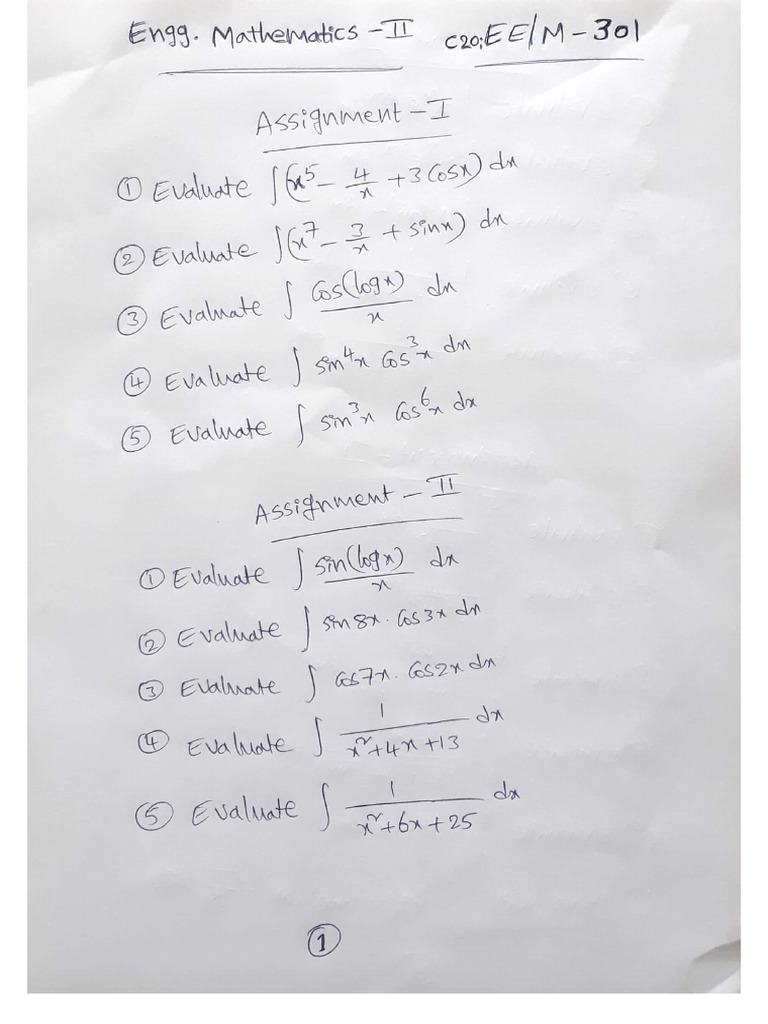 Engg. Mathematics - II C20; EE/M - 301
Assignment - I
① Evaluate ∫(x⁵ - 4/x + 3 Cosx) dx
② Evaluate ∫(x⁷ - 3/x + sinx) dx
③ Evaluate ∫ Cos(logx)/x dx
④ Evaluate ∫ sin⁴x Cos³x dx
⑤ Evaluate ∫ sin³x Cos⁶x dx
Assignment - II
① Evaluate ∫ sin(logx)/x dx
② Evaluate ∫ sin 8x. Cos 3x dx
③ Evaluate ∫ Cos7x. Cos2x dx
④ Evaluate ∫ 1/(x²+4x+13) dx
⑤ Evaluate ∫ 1/(x²+6x+25) dx
①